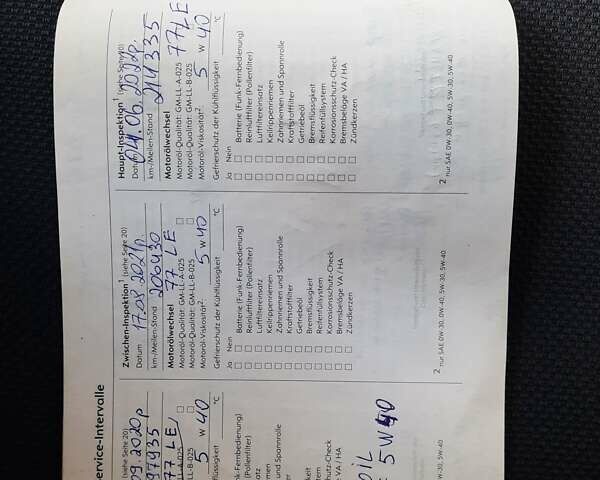 ervice-Intervalle
(siehe Seite 20)
09.2020р
97935
77 LE
LL-A-025
LL-B-025
5 W 40
gkeit °C
n-Fernbedienung)
(Pollenfilter)
satz
emen
n und Spannrolle
er
keit
tem
sschutz-Check
ge VA / HA
en
OIL
5W40
0W-40, 5W-30, 5W-40
Zwischen-Inspektion¹ (siehe Seite 20)
Datum 17.08.2021р.
km-/Meilen-Stand 206430
Motorölwechsel 77 LE
Motoröl-Qualität: GM-LL-A-025
Motoröl-Qualität: GM-LL-B-025
Motoröl-Viskosität²: 5 W 40
Gefrierschutz der Kühlflüssigkeit °C
Ja Nein
Batterie (Funk-Fernbedienung)
Reinluftfilter (Pollenfilter)
Luftfiltereinsatz
Keilrippenriemen
Zahnriemen und Spannrolle
Kraftstofffilter
Getriebeöl
Bremsflüssigkeit
Reifenfüllsystem
Korrosionsschutz-Check
Bremsbeläge VA / HA
Zündkerzen
2 nur SAE 0W-30, 0W-40, 5W-30, 5W-40
Haupt-Inspektion¹ (siehe Seite 20)
Datum 04.06.2022р.
km-/Meilen-Stand 214335
Motorölwechsel 77 LE
Motoröl-Qualität: GM-LL-A-025
Motoröl-Qualität: GM-LL-B-025
Motoröl-Viskosität²: 5 W 40
Gefrierschutz der Kühlflüssigkeit °C
Ja Nein
Batterie (Funk-Fernbedienung)
Reinluftfilter (Pollenfilter)
Luftfiltereinsatz
Keilrippenriemen
Zahnriemen und Spannrolle
Kraftstofffilter
Getriebeöl
Bremsflüssigkeit
Reifenfüllsystem
Korrosionsschutz-Check
Bremsbeläge VA / HA
Zündkerzen
2 nur SAE 0W-30, 0W-40, 5W-30, 5W-40